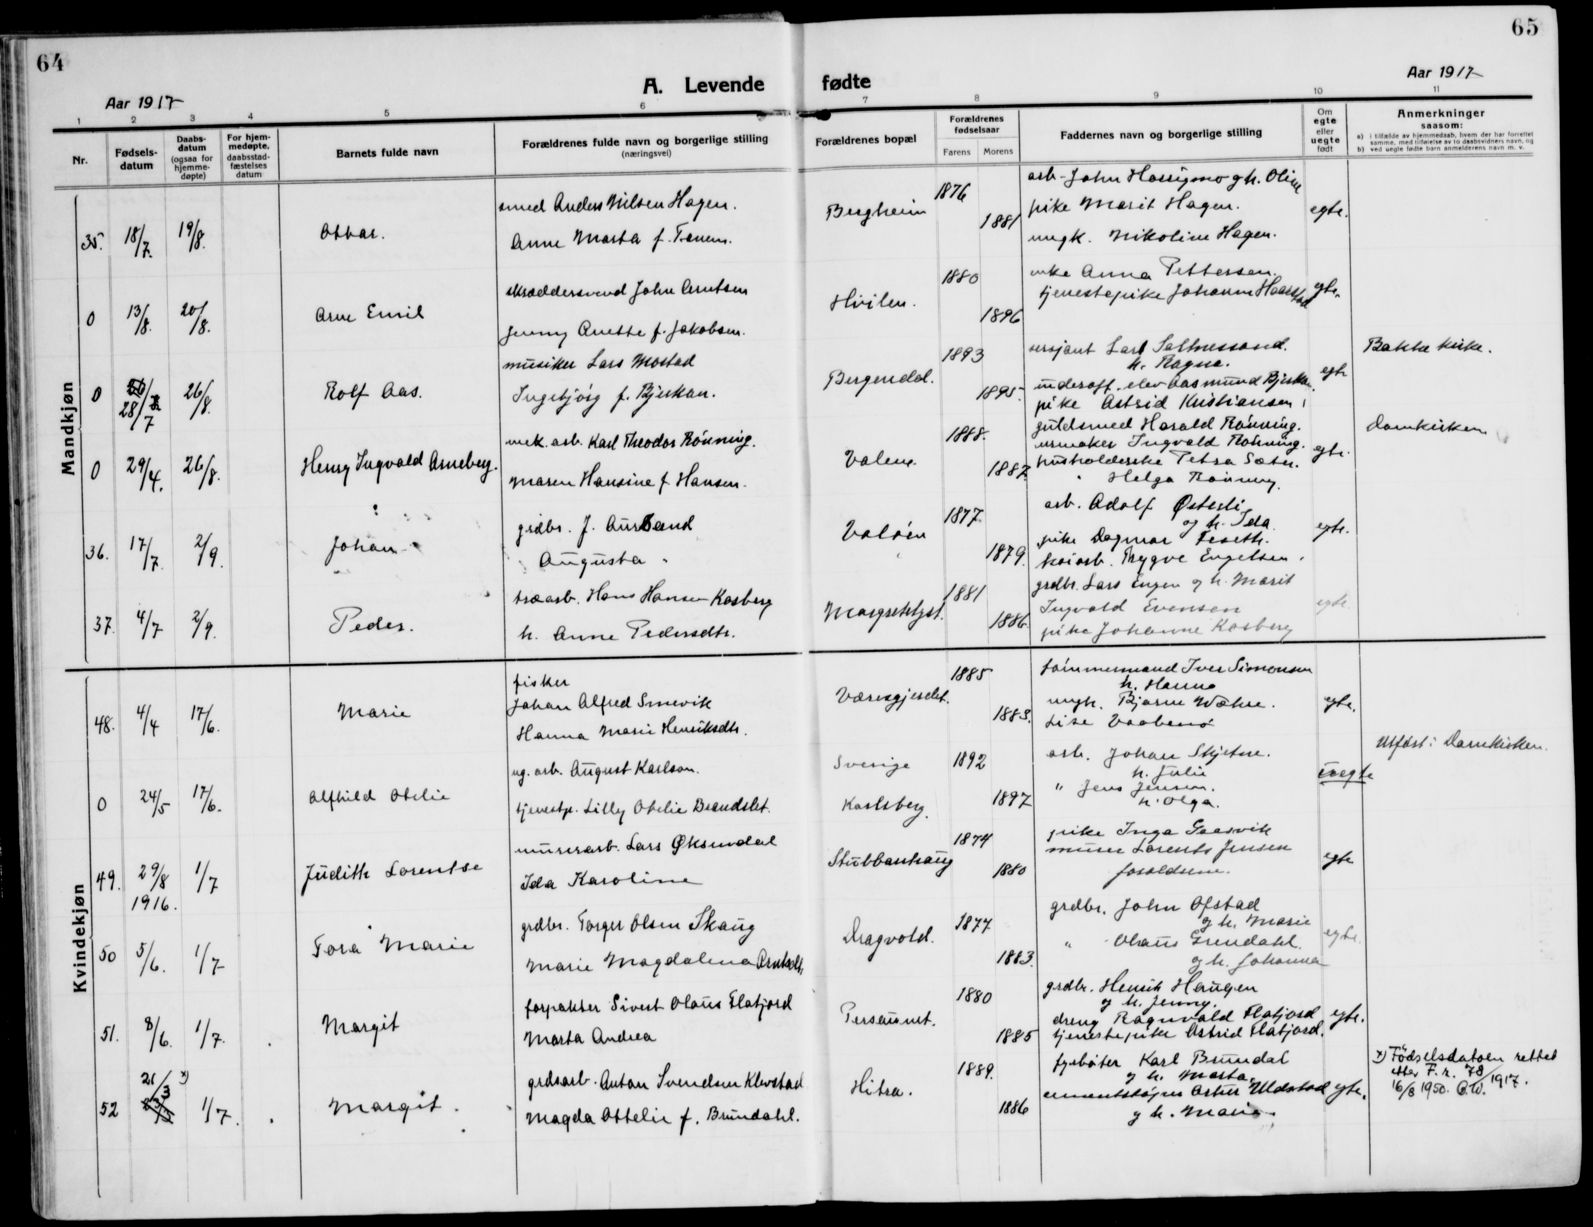 64
65
A. Levende fødte
Aar 1917
Aar 1917
1 2 3 4 5 6 7 8 9 10 11
Nr.
Fødsels-datum
Daabs-datum (ogsaa for hjemme-døpte)
For hjem-medøpte, daabsstad-fæstelses datum
Barnets fulde navn
Forældrenes fulde navn og borgerlige stilling (næringsvei)
Forældrenes bopæl
Forældrenes fødselsaar
Farens Morens
Faddernes navn og borgerlige stilling
Om egte eller uegte født
Anmerkninger saasom:
a) i tilfælde av hjemmedaab, hvem der har forrettet samme, med tilføielse av to daabsvidners navn, og
b) ved uegte fødte barn anmelderens navn m. v.
Mandkjøn
35. 18/7. 19/8. Ottar.
smed Anders Nilsen Hagen.
Anne Marta f. Tanem.
Bergheim 1876 1881
arb. John Hassigmo g h. Oline
pike Marit Hagen.
ungk. Nikoline Hagen.
egte.
0 13/8. 20/8. Arne Emil
skræddersvend John Arntsen
Jenny Anette f. Jakobsen.
Hvilen. 1880 1896
enke Anna Pettersen.
tjenestepike Johanne Haarstad
egte.
0 28/7 26/8. Rolf Aas.
musiker Lars Mostad
Ingebjørg f. Bjerkan.
Bergendal. 1893 1895.
sersjant Lars Saltnessand.
h. Ragna.
underoff. elev Aasmund Bjerkan.
pike Astrid Kristiansen,
egte
Bakke kirke.
0 29/4. 26/8. Henry Ingvald Arneberg.
mek. arb. Karl Theodor Rönning.
Maren Hansine f. Hansen.
Valene. 1888. 1887.
guldsmed Harald Rönning.
urmaker Ingvald Rönning.
husholderske Petra Sæter.
" Helga Rönning.
egte.
Domkirken
36. 17/7. 2/9. Johan
grdbr. J. Aursand
Augusta "
Valöen 1877. 1879.
arb. Adolf Østerli
og h. Ida.
pike Dagmar Leseth.
kaiarb. Trygve Engelsen.
egte.
37. 4/7 2/9. Peder.
træarb. Hans Hansen Kosberg
h. Anne Pedersdtr.
Margretelyst. 1881 1886.
grdbr. Lars Engen og h. Marit
Ingvald Evensen
pike Johanne Kosberg
egte.
Kvindekjøn
48. 4/4 17/6. Marie
fisker
Johan Alfred Smevik
Hanna Marie Henriksdtr.
Væresgjerdet. 1885 1883.
tømmermand Iver Simonsen
h. Hanna
ungk. Bjarne Wæhre.
Lise Vaabenö
egte.
0 24/5 17/6. Alfhild Otelie
ug. arb. August Karlson.
tjenestp. Lilly Otelie Brandslet.
Sverige
Karlsberg. 1892 1897
arb. Johan Skjetne.
h. Julie
" Jens Jensen.
h. Olga.
uegte
Utført i Domkirken.
49. 29/8 1916. 1/7 Judith Lorentse
murerarb. Lars Øksendal
Ida Karoline
Stubbanhaug 1874 1880
pike Inga Gaasvik
murer Lorents Jensen
foraldrene.
egte
50 5/6. 1/7 Tora Marie
grdbr. Torger Olsen Skaug
Marie Magdalena Arntsdtr.
Dragvold. 1877 1883.
grdbr. John Ofstad
og h. Marie
" Olaus Grendahl
og h. Johanna
egte.
51. 8/6. 1/7. Margit
forpakter Sivert Olaus Flatjord
Marta Andrea
Persaunet. 1880 1885
grdbr. Henrik Haugen
og h. Jenny.
dreng Ragnvald Flatjord
tjenestepike Astrid Flatjord.
egte.
52 21/3 x) 1/7. Margit.
grdsarb. Anton Svendsen Klevstad
Magda Ottelie f. Brundahl.
Hitra. 1889. 1886
fyrbøter Karl Brundal
og h. Marta.
cementstøper Ostur Uldstad
og h. Marie.
egte.
x) Fødselsdatoen rettet
etter F. r. 78/1917.
16/8 1950. C.W.